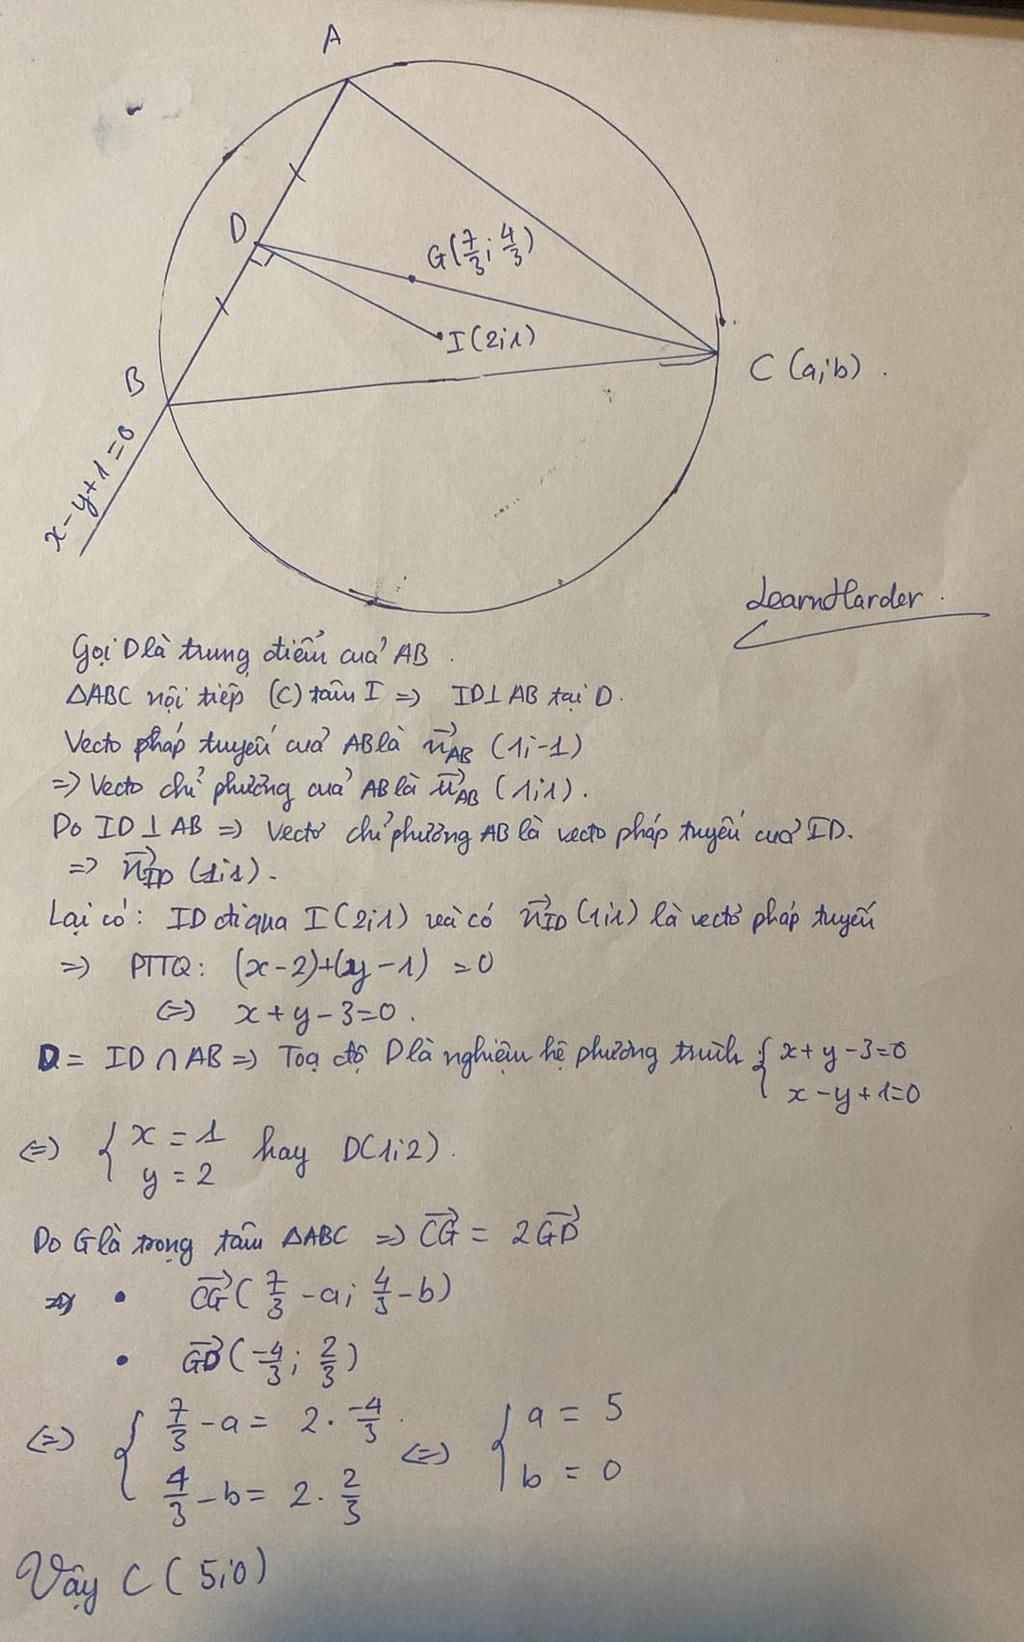 A
D
G(7/3; 4/3)
I(2;1)
B
C (a;b).
x-y+1=0
LearnHarder.
Gọi D là trung điểm của AB.
ΔABC nội tiếp (C) tâm I => ID⊥AB tại D.
Vecto pháp tuyến của AB là n⃗_AB (1;-1)
=> Vecto chỉ phương của AB là u⃗_AB (1;1).
Do ID ⊥ AB => Vectơ chỉ phương AB là vecto pháp tuyến của ID.
=> n⃗_ID (1;1).
Lại có: ID đi qua I(2;1) và có n⃗_ID (1;1) là vectơ pháp tuyến
=> PTTQ: (x-2)+(y-1) =0
<=> x+y-3=0.
D = ID ∩ AB => Toạ độ D là nghiệm hệ phương trình { x+y-3=0
x-y+1=0
<=> { x = 1
y = 2 hay D(1;2).
Do G là trọng tâm ΔABC => C⃗G = 2G⃗D
=> • C⃗G (7/3 -a; 4/3 -b)
• G⃗D (-4/3; 2/3)
<=> { 7/3 -a = 2. -4/3 <=> { a = 5
4/3 -b = 2. 2/3 b = 0
Vậy C (5;0)